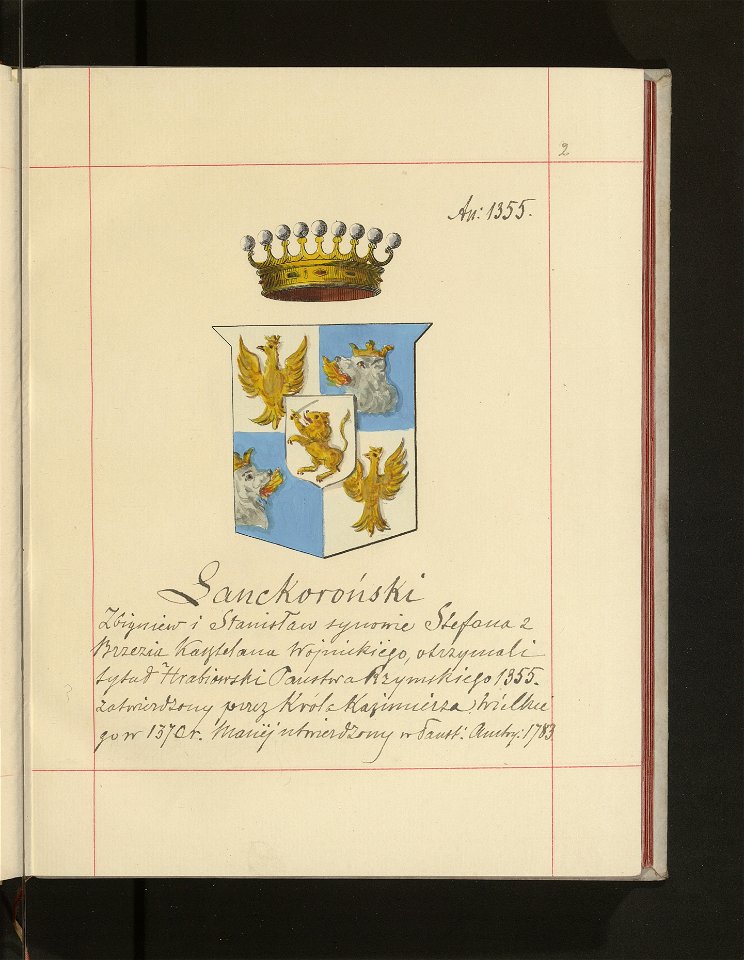 2
An: 1355.
Lanckoroński
Zbigniew i Stanisław synowie Stefana z
Brzezia Kasztelana Wojnickiego, otrzymali
tytuł Hrabiowski Państwa Rzymskiego 1355.
zatwierdzony przez Króla Kazimierza Wielkie
go w 1370 r. utwierdzony w Państ: Austry: 1783